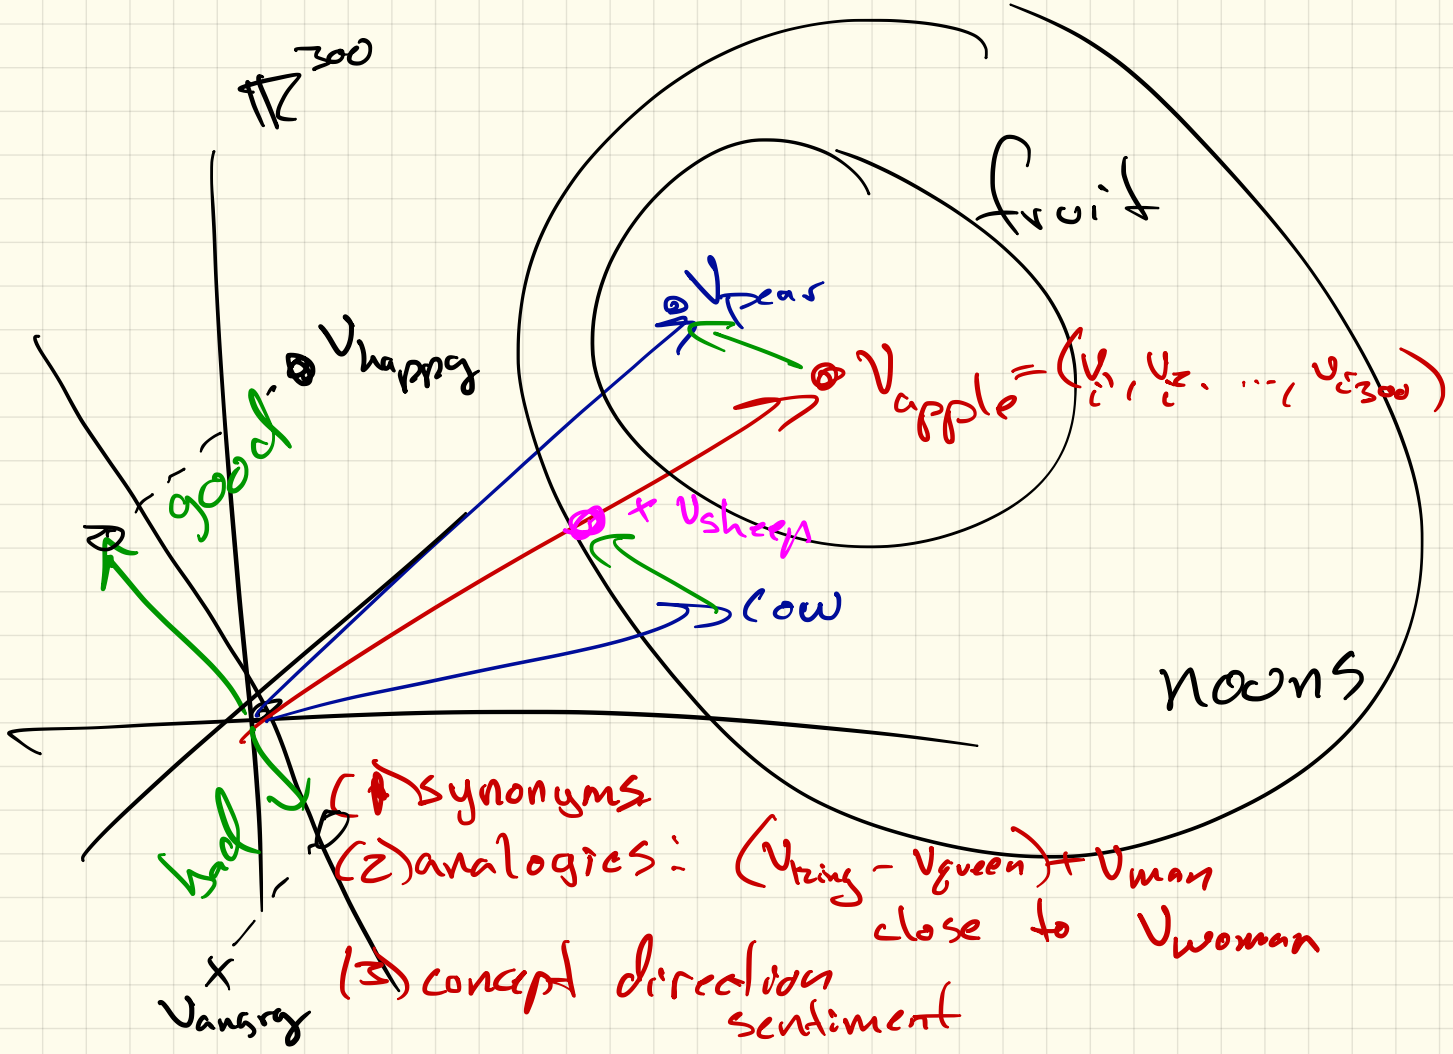 ℝ^300
fruit
V_pear
V_happy
V_apple = (V_i1, V_i2, ..., V_i300)
good
+ V_sheep
cow
nouns
(1) synonyms
(2) analogies: (V_king - V_queen) + V_man
close to V_woman
bad
(3) concept direction
sentiment
V_angry